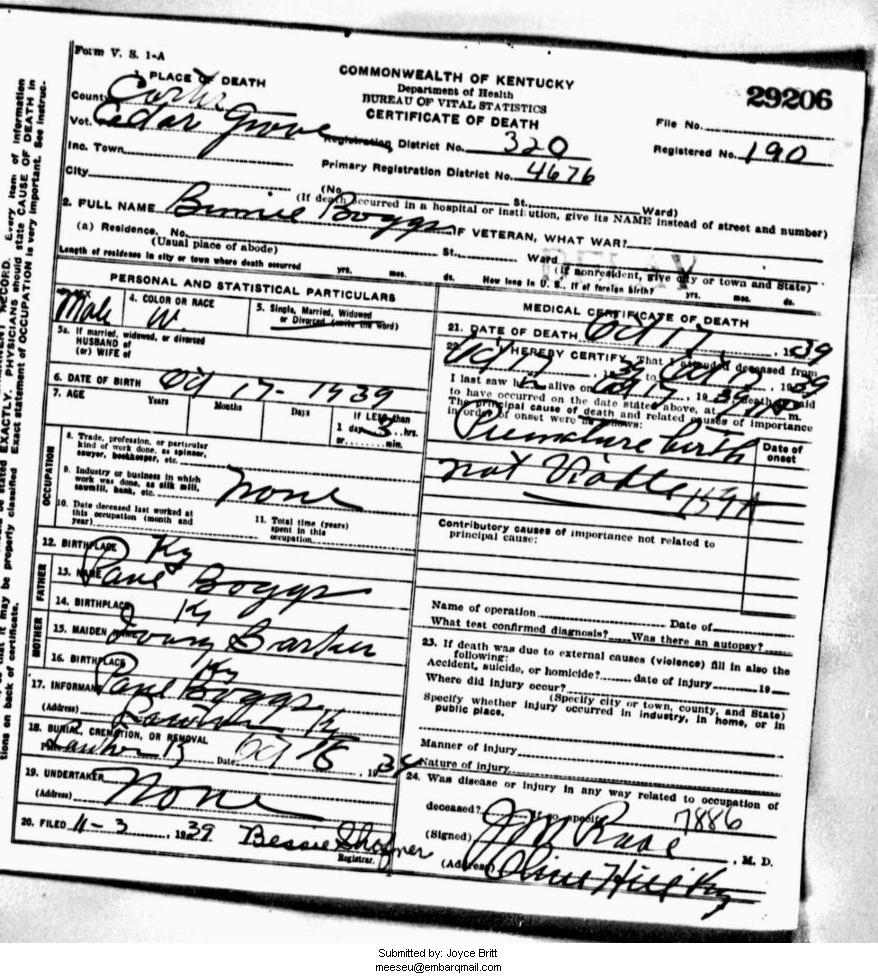 Form V. S. 1-A
COMMONWEALTH OF KENTUCKY
Department of Health
BUREAU OF VITAL STATISTICS
CERTIFICATE OF DEATH
29206
File No.
Registered No. 190
1. PLACE OF DEATH
County Carter
Vot. Cedar Grove
Registration District No. 320
Inc. Town
Primary Registration District No. 4676
City
(No. St. Ward)
(If death occurred in a hospital or institution, give its NAME instead of street and number)
2. FULL NAME Boggs IF VETERAN, WHAT WAR?
(a) Residence. No. St. Ward
(Usual place of abode) (If nonresident, give city or town and State)
Length of residence in city or town where death occurred yrs. mos. ds. How long in U. S., if of foreign birth? yrs. mos. ds.
PERSONAL AND STATISTICAL PARTICULARS
3. SEX Male
4. COLOR OR RACE W.
5. Single, Married, Widowed or Divorced (write the word)
5a. If married, widowed, or divorced
HUSBAND of
(or) WIFE of
6. DATE OF BIRTH Oct 17-1939
7. AGE Years Months Days If LESS than
1 day, 3 hrs.
or min.
OCCUPATION
8. Trade, profession, or particular
kind of work done, as spinner,
sawyer, bookkeeper, etc.
9. Industry or business in which
work was done, as silk mill,
sawmill, bank, etc. none
10. Date deceased last worked at
this occupation (month and
year)
11. Total time (years)
spent in this
occupation
12. BIRTHPLACE Ky
FATHER
13. NAME Boggs
14. BIRTHPLACE Ky
MOTHER
15. MAIDEN NAME Barker
16. BIRTHPLACE Ky
17. INFORMANT Boggs
(Address) Ky
18. BURIAL, CREMATION, OR REMOVAL
Date Oct 18, 19
19. UNDERTAKER None
(Address)
20. FILED 11-3, 1939 Bessie
Registrar.
MEDICAL CERTIFICATE OF DEATH
21. DATE OF DEATH Oct 17, 1939
22. I HEREBY CERTIFY, That I attended deceased from
Oct 17, 1939 to Oct 17, 1939
I last saw h alive on Oct 17, 1939, death is said
to have occurred on the date stated above, at m.
The principal cause of death and related causes of importance
in order of onset were as follows:
Date of
onset
Premature birth
not Viable
Contributory causes of importance not related to
principal cause:
Name of operation Date of
What test confirmed diagnosis? Was there an autopsy?
23. If death was due to external causes (violence) fill in also the
following:
Accident, suicide, or homicide? date of injury 19
Where did injury occur?
(Specify city or town, county, and State)
Specify whether injury occurred in industry, in home, or in
public place.
Manner of injury
Nature of injury
24. Was disease or injury in any way related to occupation of
deceased? If so specify 7886
(Signed) J M Rose, M. D.
(Address) Olive Hill Ky
Submitted by: Joyce Britt
meeseu@embarqmail.com